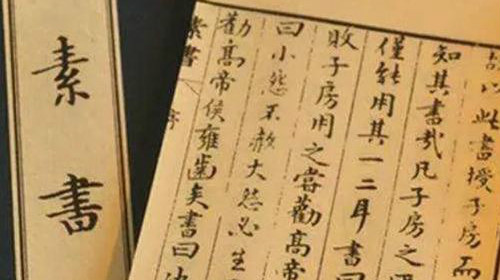 素書
以此書授子房而
知其書哉凡子房之
僅能用其一二耳書曰
敗子房用之嘗勸高帝
曰小怨不赦大怨必生
勸高帝侯雍齒矣書曰
素書 序